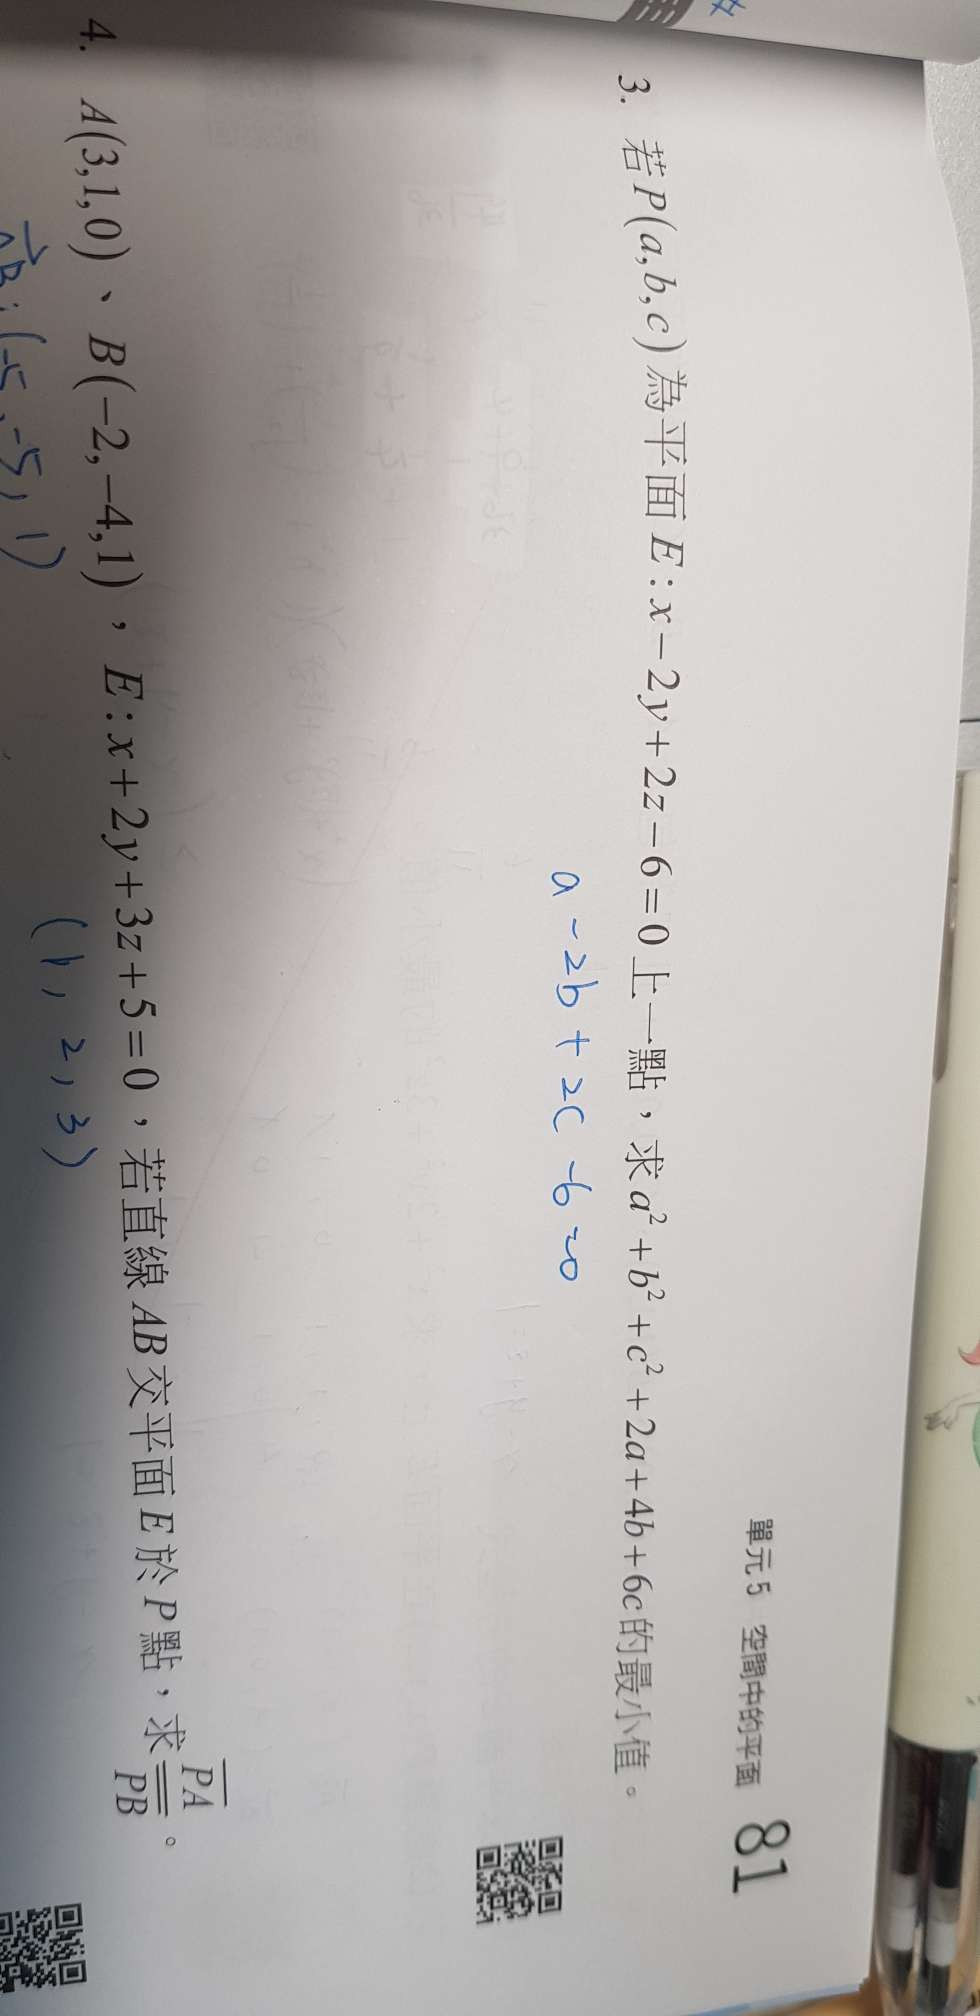 單元 5 空間中的平面 81
3. 若P(a,b,c)為平面E:x−2y+2z−6=0上一點，求a²+b²+c²+2a+4b+6c的最小值。
a −2b + 2c −6 =0
4. A(3,1,0)、B(−2,−4,1)，E:x+2y+3z+5=0，若直線AB交平面E於P點，求\frac{\overline{PA}}{\overline{PB}}。
AB:(−5,−5,1) (1,2,3)